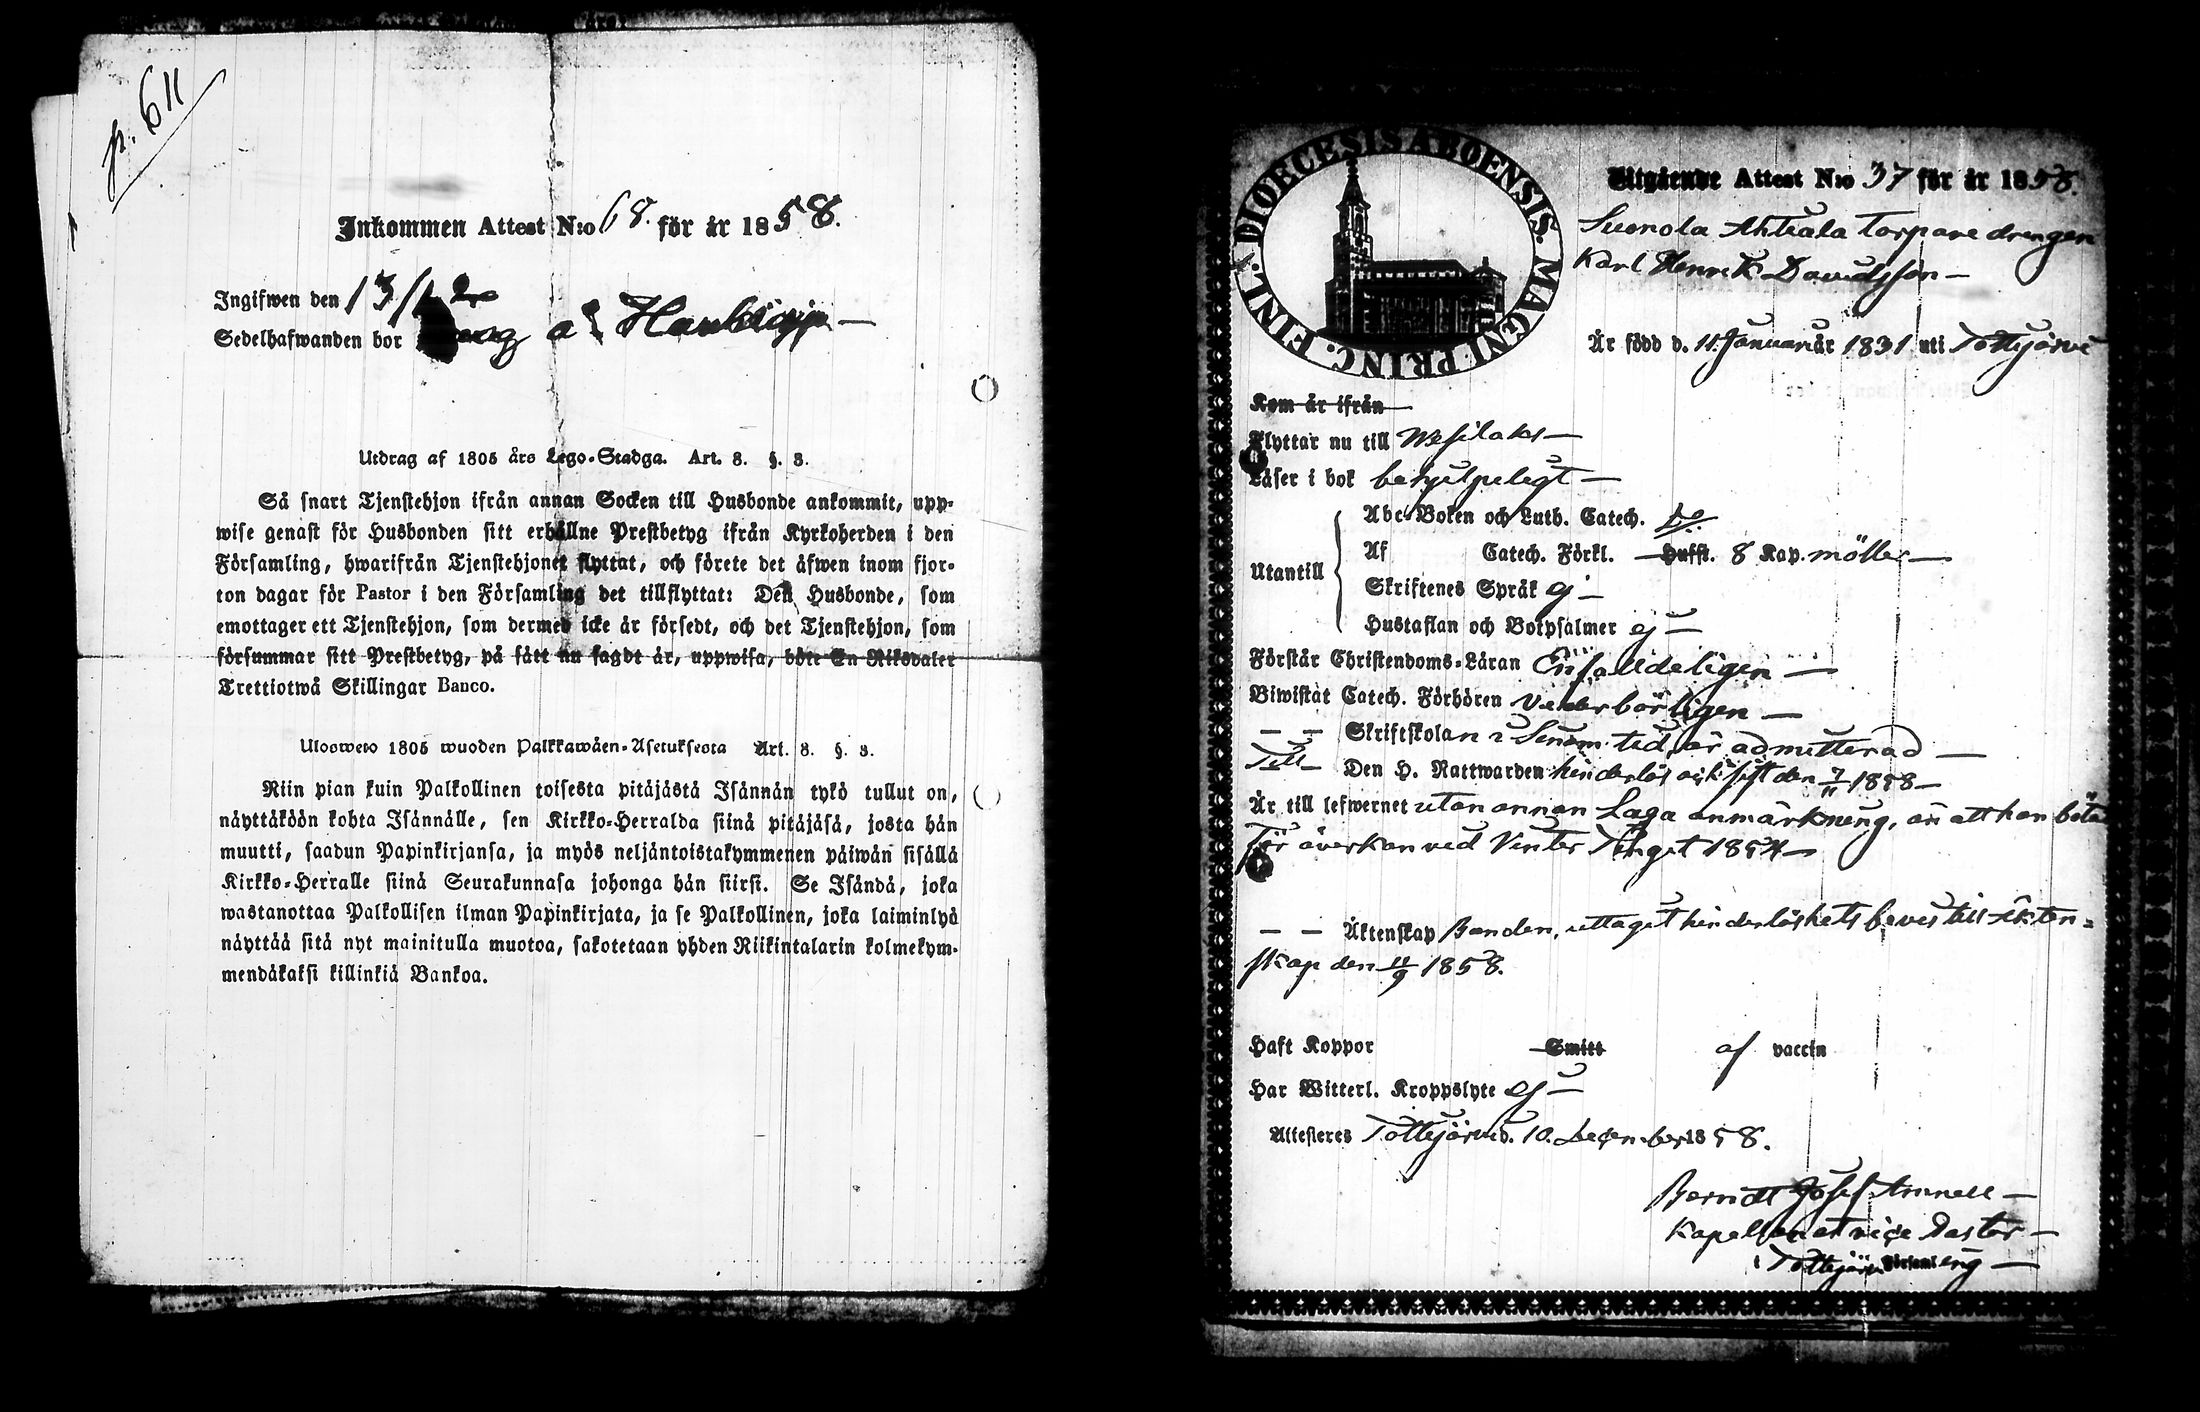 p. 611
Inkommen Attest N:o 68. för år 1858.
Ingifwen den 13/12
Sedelhafwanden bor
Utdrag af 1805 års Lego-Stadga. Art. 8. §. 3.
Så snart Tjenstehjon ifrån annan Socken till Husbonde ankommit, upp-
wise genast för Husbonden sitt erhållne Prestbetyg ifrån Kyrkoherden i den
Församling, hwarifrån Tjenstehjonet flyttat, och förete det äfwen inom fjor-
ton dagar för Pastor i den Församling det tillflyttat: Den Husbonde, som
emottager ett Tjenstehjon, som dermed icke är försedt, och det Tjenstehjon, som
försummar sitt Prestbetyg, på sätt nu sagdt är, uppwisa, böte En Riksdaler
Trettiotwå Skillingar Banco.
Ulosweto 1805 wuoden Palkkawäen-Asetuksesta Art. 8. §. 3.
Niin pian kuin Palkollinen toisesta pitäjästä Isännän tykö tullut on,
näyttäköön kohta Isännälle, sen Kirkko-Herralda siinä pitäjäsä, josta hän
muutti, saadun Papinkirjansa, ja myös neljäntoistakymmenen päiwän sisällä
Kirkko-Herralle siinä Seurakunnasa johonga hän siirsi. Se Isändä, joka
wastanottaa Palkollisen ilman Papinkirjata, ja se Palkollinen, joka laiminlyö
näyttää sitä nyt mainitulla muotoa, sakotetaan yhden Riikintalarin kolmekym-
mendäkaksi killinkiä Bankoa.
DIOECESIS ABOENSIS. MAGNI PRINC. FINL.
Utgående Attest N:o 37 för år 1858.
Suonola Ahtiala Torpare drengen
Karl Henrik Davidsson
Är född d. 11. Januari år 1831 uti Tottijärvi
Kom år ifrån
Flyttar nu till Wesilaks
Läser i bok behjelpeligt
Abc-Boken och Luth. Catech. do.
Utantill Af Catech. Förkl. Hufst. 8 Kap. möller
Skriftenes Språk ej
Hustaflan och Botpsalmer ej
Förstår Christendoms-Läran Enfaldeligen
Biwistat Catech. Förhören Vederbörligen
— — Skriftskolan i Sinom tid, är admitterad
Till Den H. Nattwarden hinderlös gick sist den 7/11 1858
Är till lefwernet utan annan Laga anmärkning, än att han böta
för åverkan vid Vinter Tinget 1854
— — Äktenskap Banden, uttaget hinderlöshets bevis till Äkten-
skap den 11/9 1858.
Haft Koppor Smitt af vaccin
Har Witterl. Kroppslyte ej
Attesteres Tottijärvi d. 10. December 1858.
Berndt Josef Amnell
Kapellan et vice Pastor
i Tottijärvi Församling